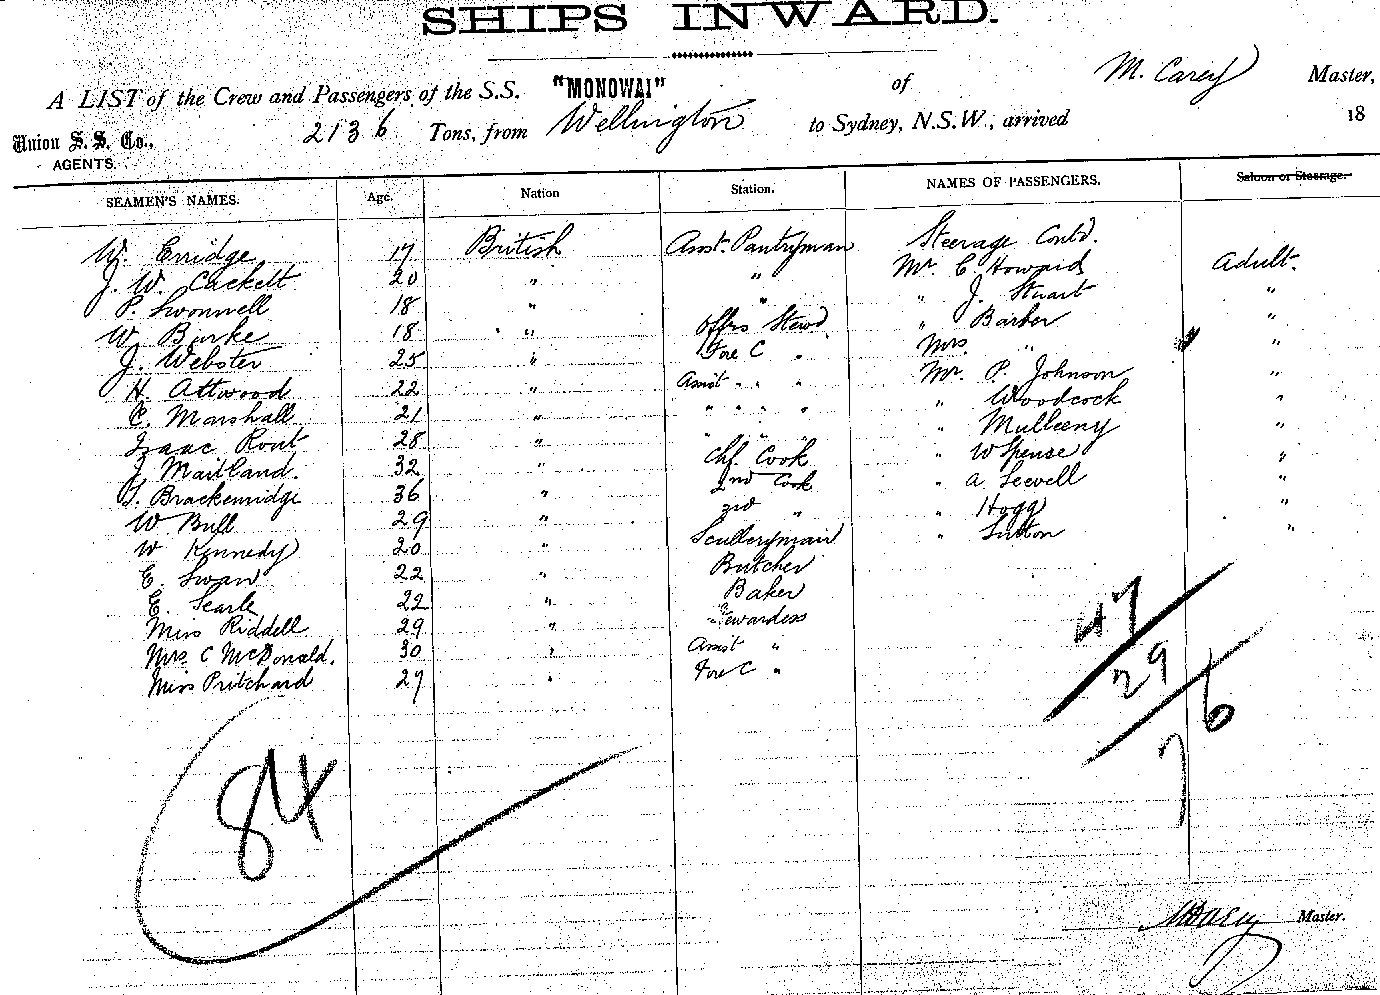 SHIPS INWARD.
A LIST of the Crew and Passengers of the S.S. "MONOWAI" of M. Carey Master,
Union S. S. Co., AGENTS. 2136 Tons, from Wellington to Sydney, N.S.W., arrived 18
SEAMEN'S NAMES. Age. Nation Station. NAMES OF PASSENGERS. Saloon or Steerage.
Steerage Contd.
W. Erridge 17 British Asst. Pantryman Mr C Howard Adult.
J. W. Cackett 20 " " " J. Stuart "
P. 18 " " " Barber "
W. Burke 18 " Offrs Stewd Mrs " "
J. Webster 25 " Fore C " Mr. P. Johnson "
H. Attwood 22 " Assist " " " " Woodcock "
C. Marshall 21 " " " " " " Mulleeny "
Isaac Rout 28 " " " " " W Spense "
J. Maitland. 32 " Chf. Cook " A. Seevell "
Brackenridge 36 " 2nd Cook " Hogg "
W Bull 29 " 3rd " " Sutton "
W Kennedy 20 " Scullerymaid
E. Swan 22 " Butcher
E. Searle 22 " Baker
Miss Riddell 29 " Stewardess
Mrs. C McDonald. 30 " Assist "
Miss Pritchard 27 " Fore C "
47
29
76
84
M Carey Master.